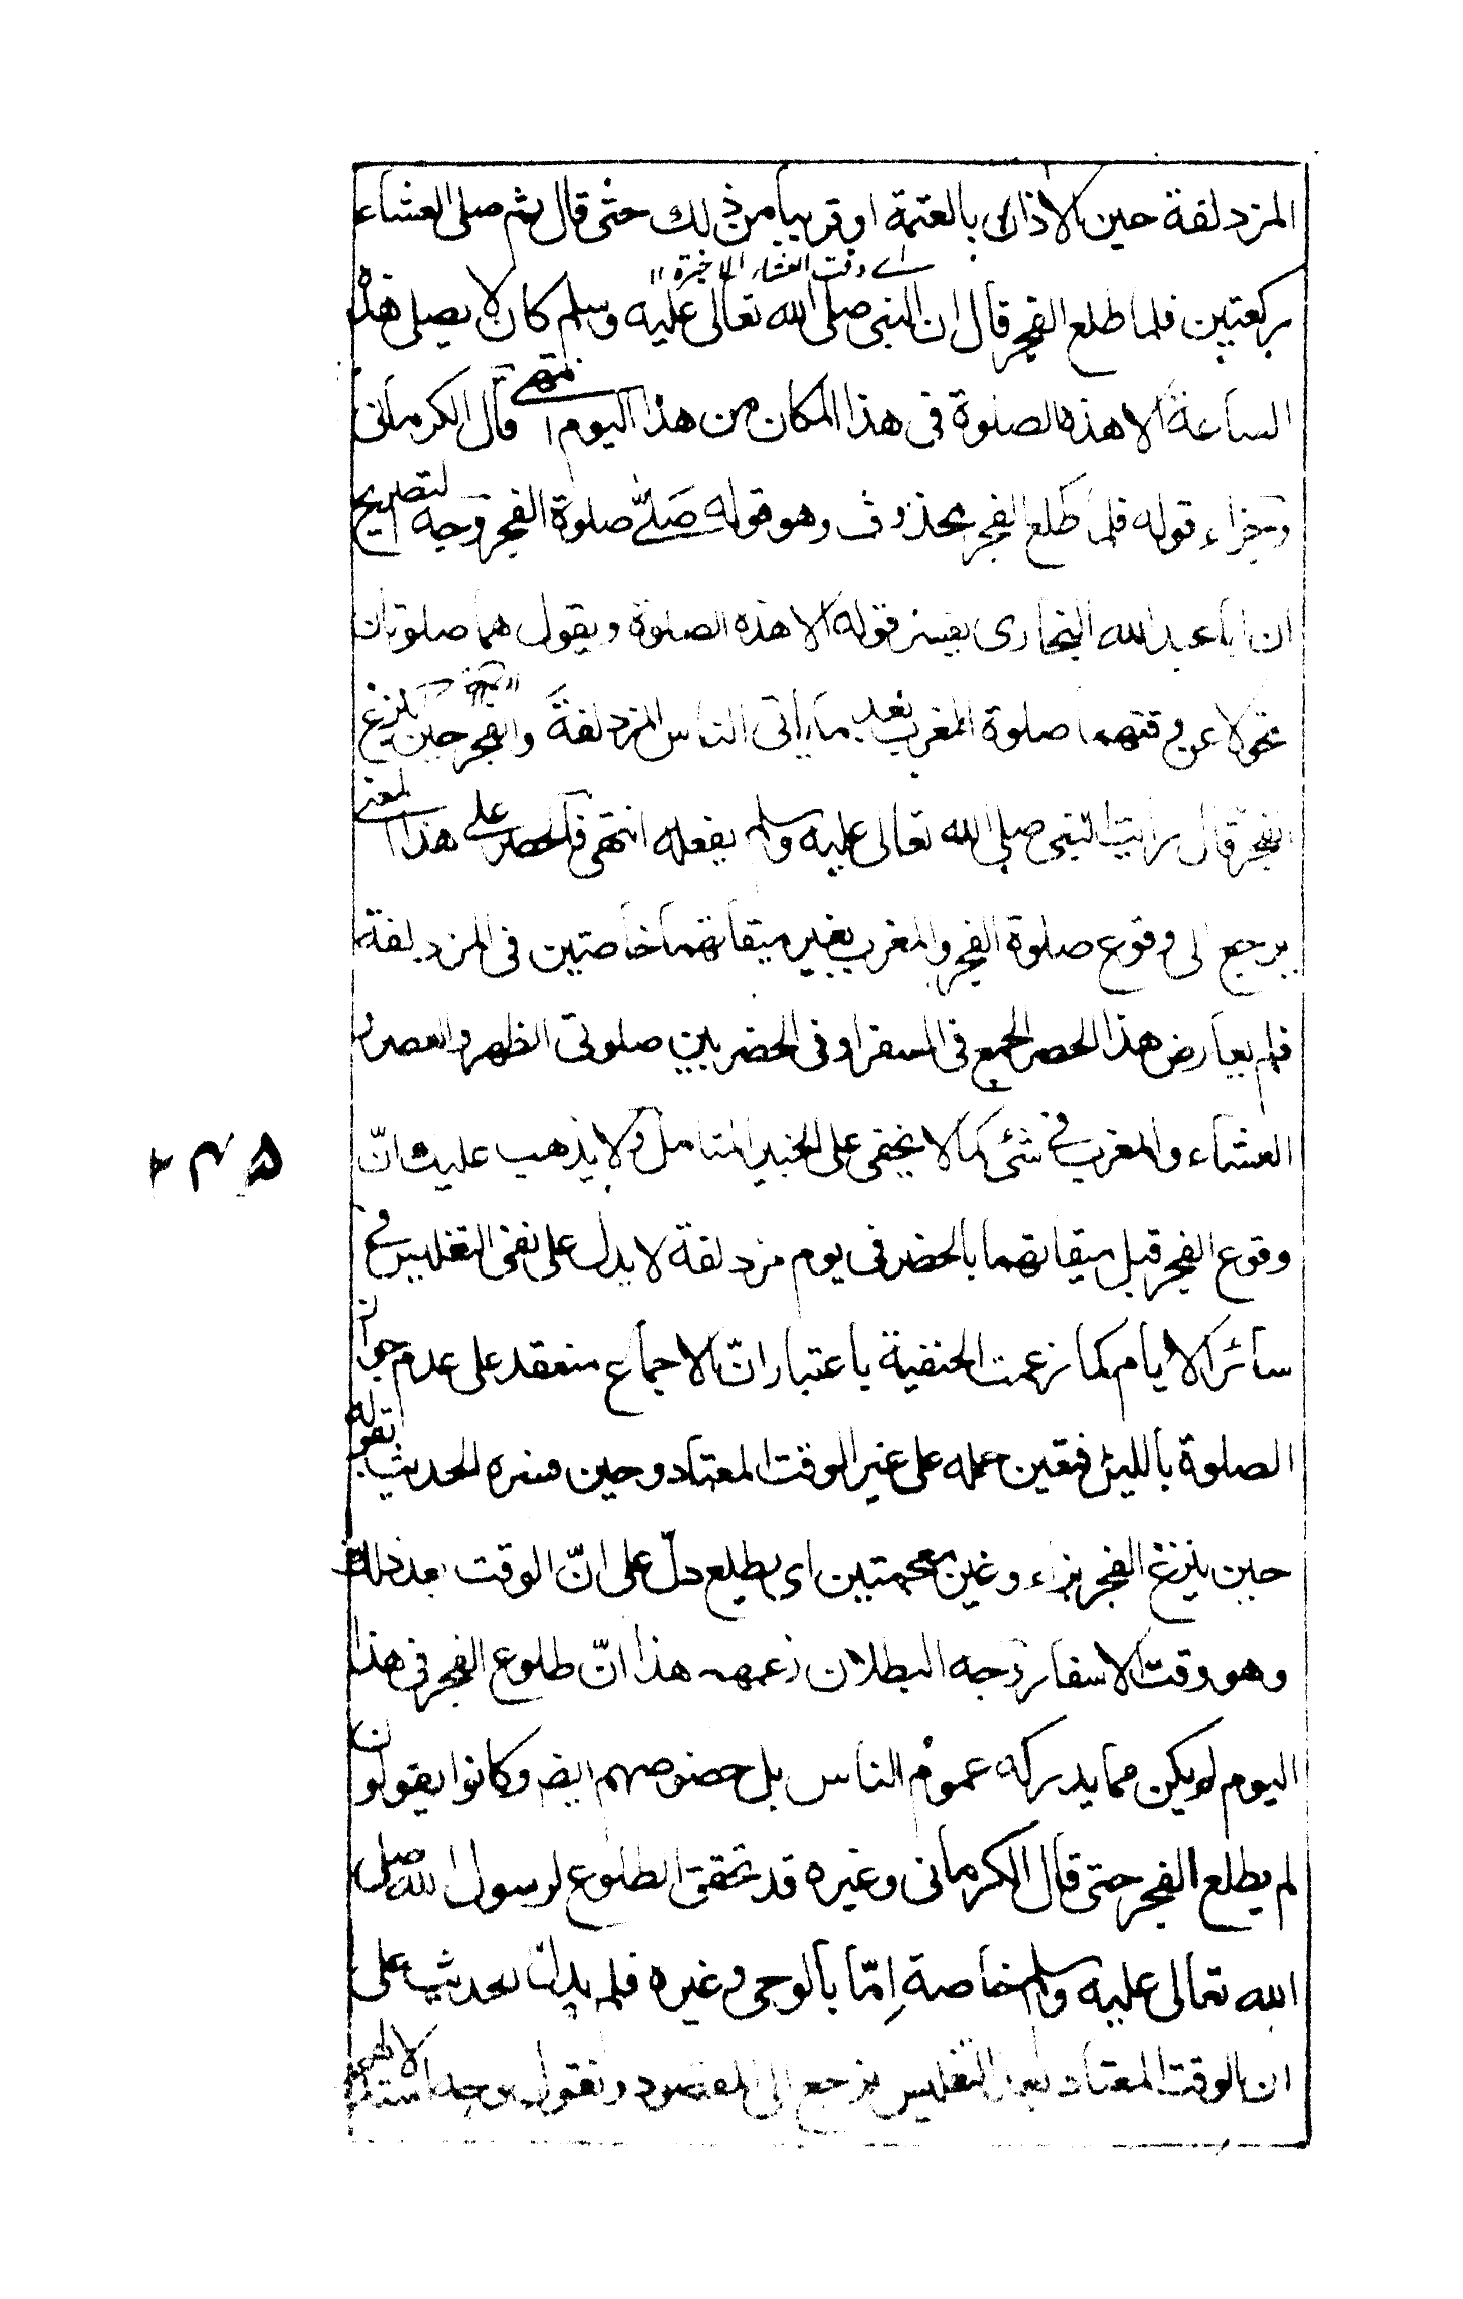 المزدلفة حين الاذان بالعتمة او قريبا من ذلك حتى قال ثم صلى العشاء
اے وقت العشاء الاخيرة ۱۱
ركعتين فلما طلع الفجر قال ان النبى صلى الله تعالى عليه وسلم كان لا يصلى هذه
الساعة الا هذه الصلوة فى هذا المكان من هذا اليوم انتهى قال الكرمانى
وجزاء قوله فلما طلع الفجر محذوف وهو قوله صَلّى صلوة الفجر وجه التصريح
ان ابا عبد الله البخارى يفسر قوله الا هذه الصلوة ويقول هما صلوتان
تحولا عن وقتهما صلوة المغرب بعد ما ياتى الناس المزدلفة والفجر حين يبزغ
الفجر قال رايت النبى صلى الله تعالى عليه وسلم يفعله انتهى فالحصر على هذا المعنى
يرجع الى وقوع صلوة الفجر والمغرب بغير ميقاتهما خاصتين فى المزدلفة
فلم يعارض هذا الحصر الجمع فى السفر او فى الحضر بين صلوتى الظهر والعصر و
العشاء والمغرب فى شئ كما لا يخفى على الخبير المتامل ولا يذهب عليك انّ
۲۴۵
وقوع الفجر قبل ميقاتهما بالحضر فى يوم مزدلفة لا يدل على نفى التغليس فى
سائر الايام كما زعمت الحنفية باعتبار انّ الاجماع منعقد على عدم جواز
الصلوة بالليل فتعين حمله على غير الوقت المعتاد وحين فسره الحديث بقوله
حين يبزغ الفجر بزاء وغين معجمتين اى يطلع دلّ على انّ الوقت بعد ذلك
وهو وقت الاسفار وجه البطلان زعمهم هذا انّ طلوع الفجر فى هذا
اليوم لم يكن مما يدركه عموم الناس بل خصوصهم ايضا وكانوا يقولون
لم يطلع الفجر حتى قال الكرمانى وغيره قد تحقق الطلوع لرسول الله صلى
الله تعالى عليه وسلم خاصة اِمّا بالوحى وغيره فلم يدلّ الحديث على
ان الوقت المعتاد بعد التغليس نرجع الى المقصود ونقول وجه